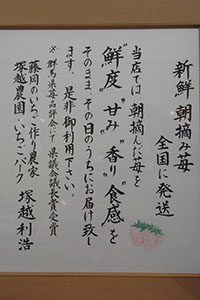 新鮮 朝摘み苺
全国に発送
当店では 朝摘んだ苺を
"鮮度""甘み""香り""食感"を
そのまま、その日のうちにお届け致し
ます。是非御利用下さい。
※群馬県苺品評会にて県議会議長賞受賞
藤岡のいちご作り農家
塚越農園・いちごパーク 塚越利浩